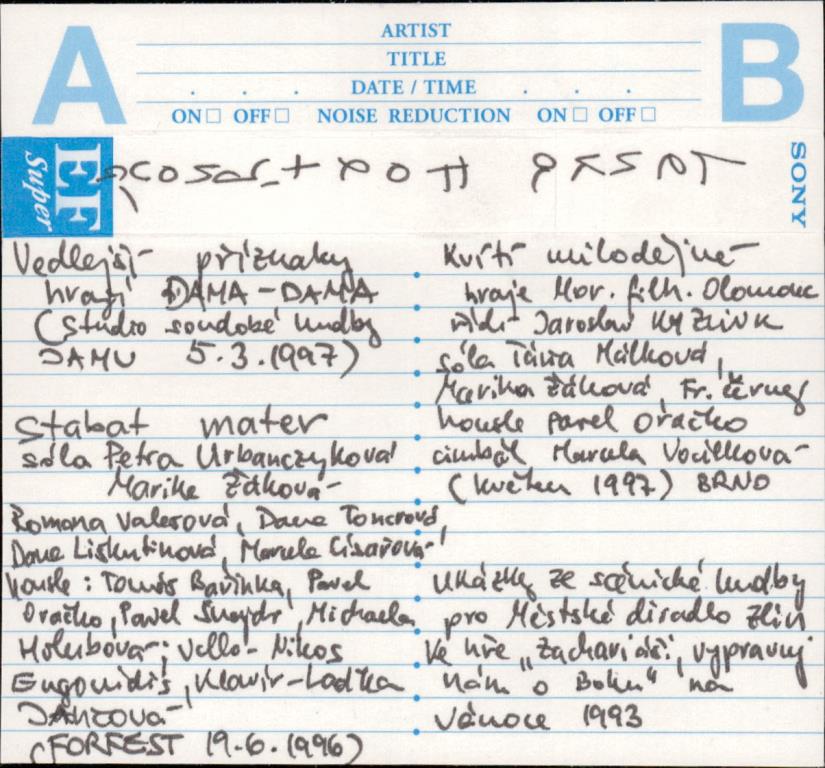 A
B
ARTIST
TITLE
DATE / TIME
ON OFF NOISE REDUCTION ON OFF
EF
Super
SONY
Vedlejší příznaky
hrají DAMA-DAMA
(studio soudobé hudby
JAMU 5.3.1997)
Stabat mater
sóla Petra Urbanczyková
Marika Žáková
Romana Valerová, Dana Toncrová,
Dana Liskutinová, Marcela Císařová
housle: Tomáš Bařinka, Pavel
Oračko, Pavel Šnajdr, Michaela
Holubová; vcello - Nikos
Engonidis, klavír - Laďka
(FORFEST 19.6.1996)
Kvítí milodějné
hraje Mor. filh. Olomouc
řídí Jaroslav
sóla Táňa Málková,
Marika Žáková, Fr. Černý
housle Pavel Oračko
cimbál Marcela Vocilková
(květen 1997) BRNO
Ukázky ze scénické hudby
pro Městské divadlo Zlín
ke hře "Zachariáši, vypravuj
nám o Bohu" na
vánoce 1993